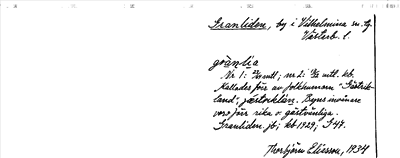 Granliden, by i Vilhelmina sn. o.
Västerb. l.
grànlia
Nr 1: mtl; nr 2: mtl. kb.
Kallades förr av folkhumorn "Gästrik-
land", Byns invånare
voro förr rika o. gästvänliga.
Granliden. jb; kb 1929; S 44.
Thorbjörn Eliasson, 1934